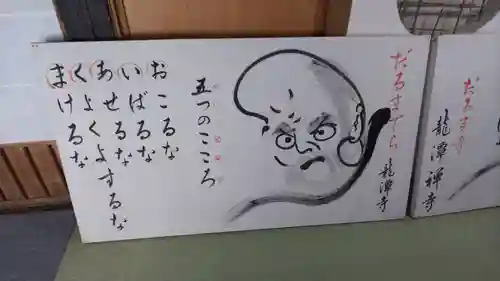 だるまでら
龍潭寺
五つのこころ
おこるな
いばるな
あせるな
くよくよするな
まけるな
だるまの
龍潭禅寺